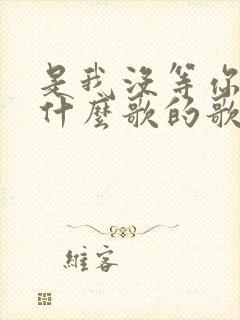 是我沒等你
什麼歌的歌
維客